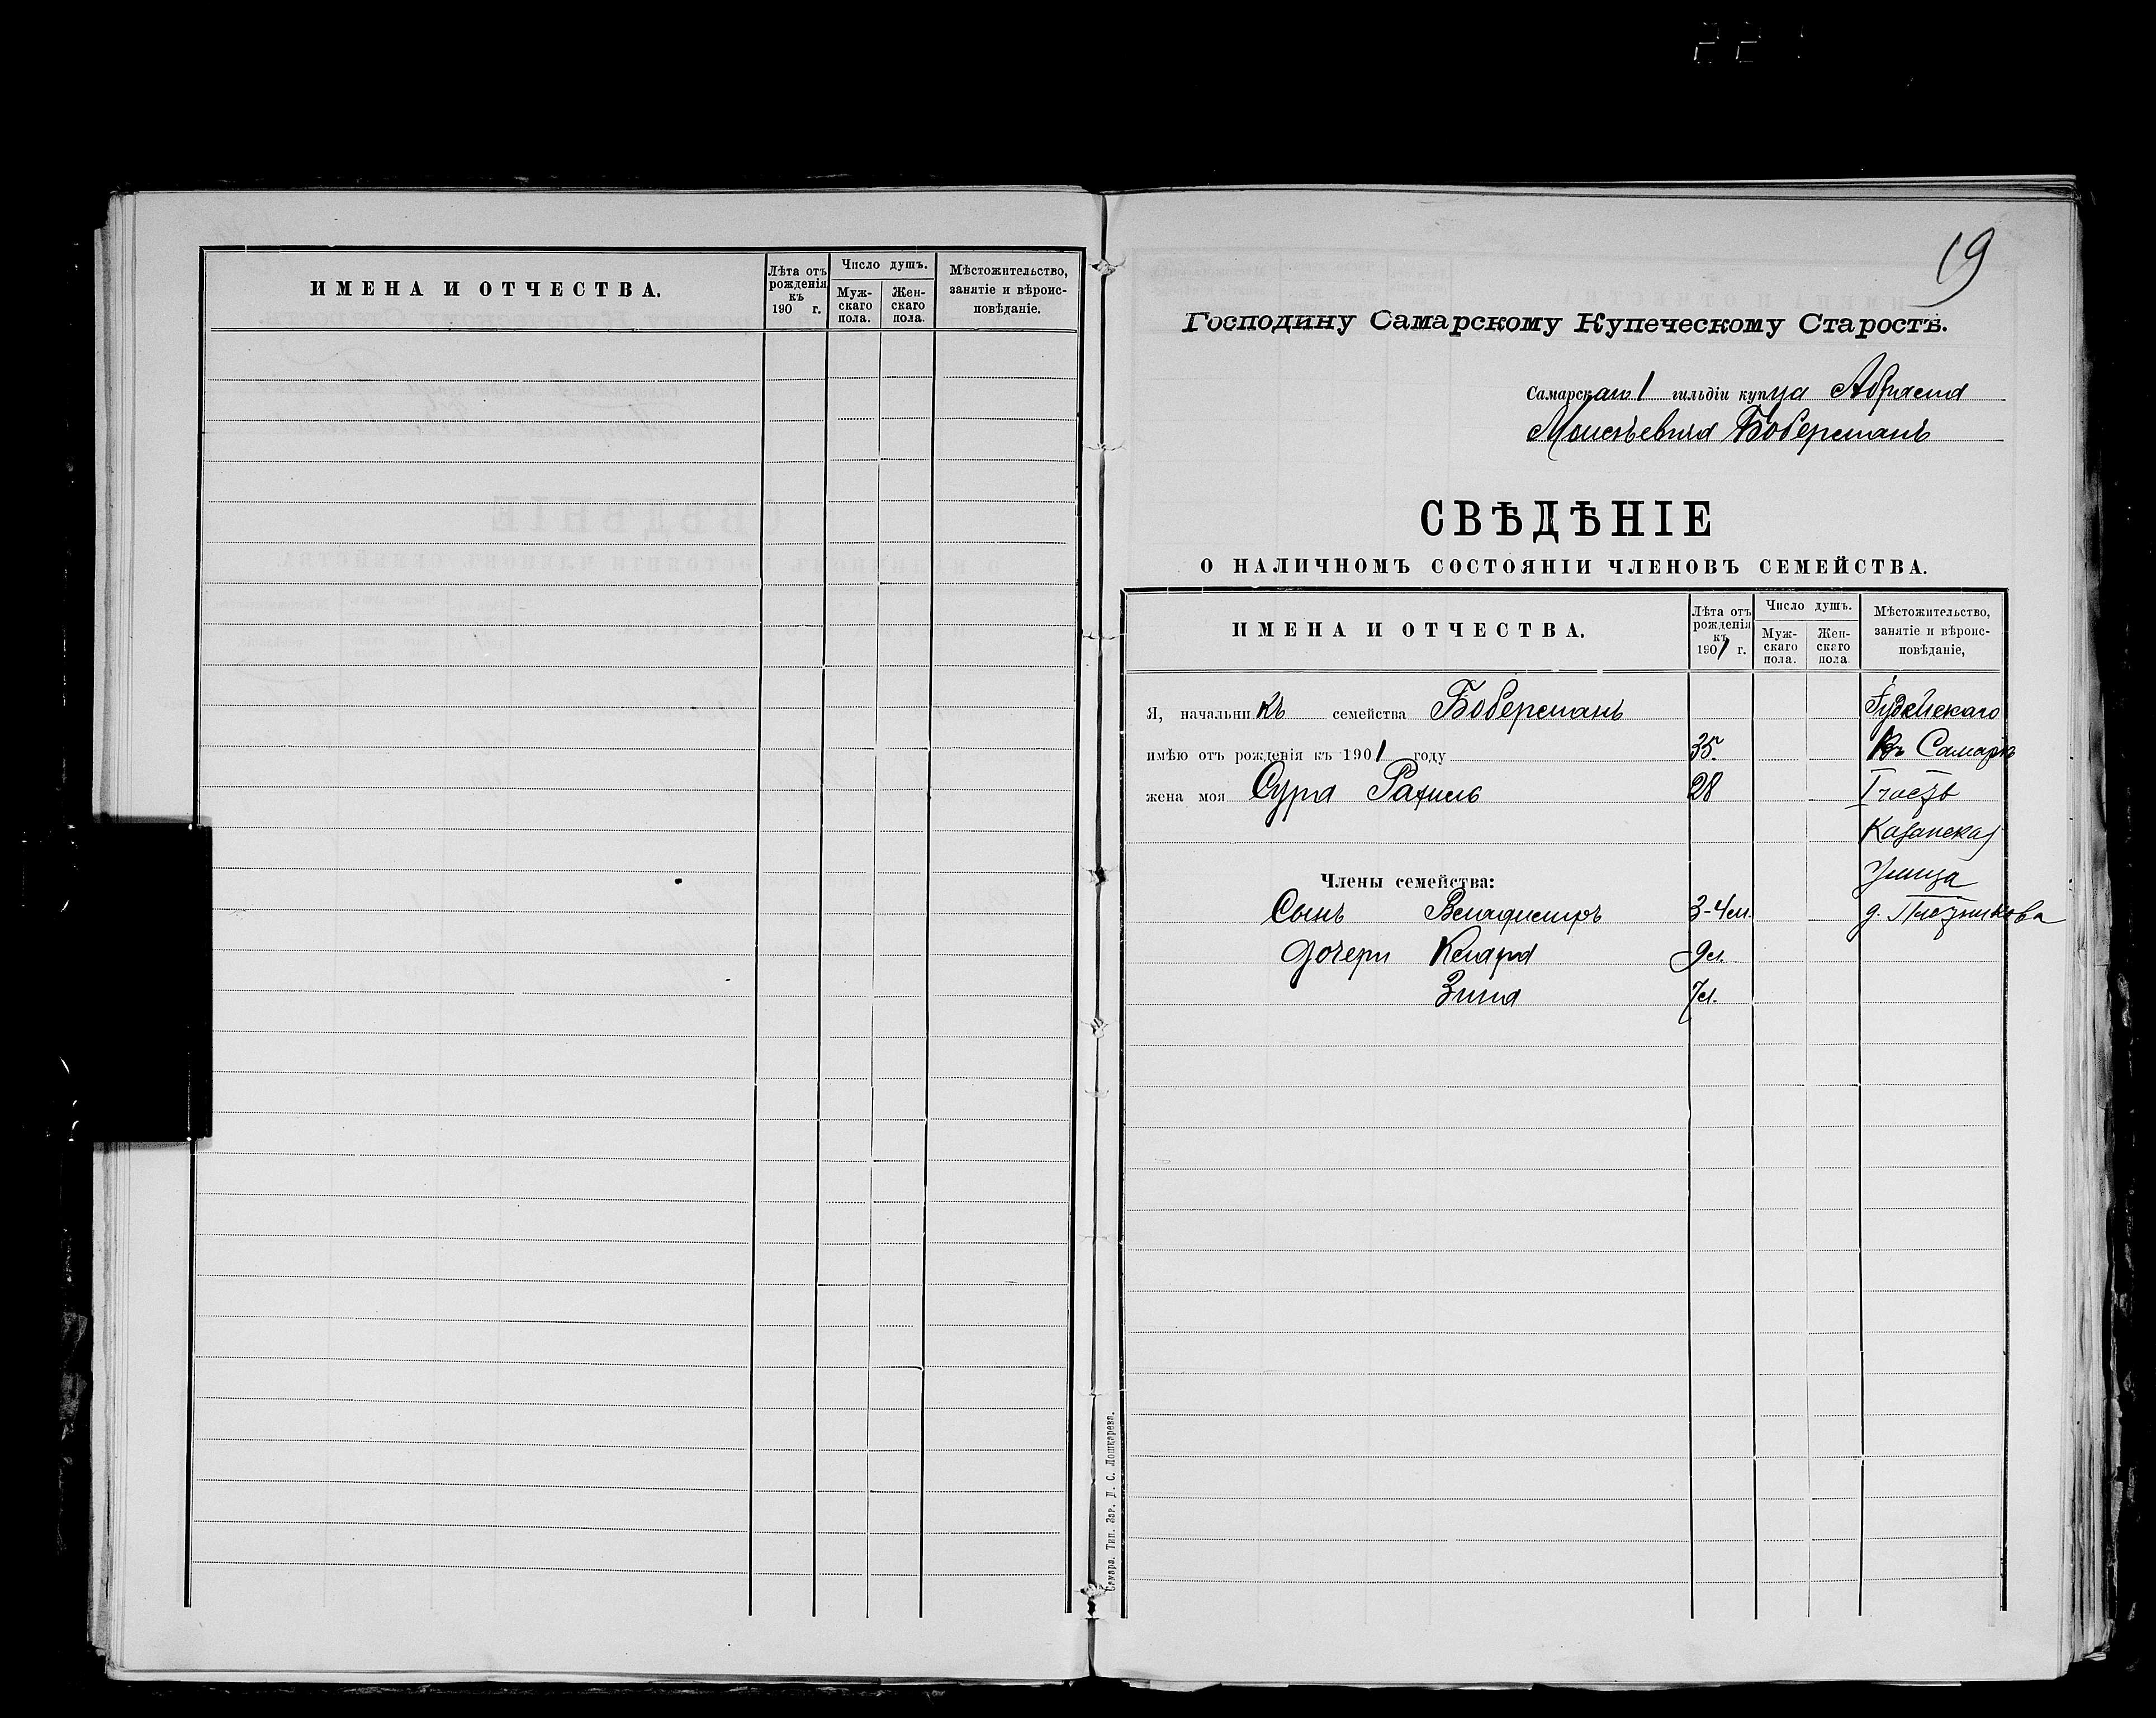 ИМЕНА И ОТЧЕСТВА.
Лѣта отъ рожденія къ 190 г.
Число душъ.
Муж-скаго пола.
Жен-скаго пола.
Мѣстожительство, занятіе и вѣроис-повѣданіе.
19
Господину Самарскому Купеческому Старостѣ.
Самарскаго 1 гильдіи купца Абрама
Моисѣевича Боберманъ
СВѢДѢНІЕ
О НАЛИЧНОМЪ СОСТОЯНІИ ЧЛЕНОВЪ СЕМЕЙСТВА.
ИМЕНА И ОТЧЕСТВА.
Лѣта отъ рожденія къ 1901 г.
Число душъ.
Муж-скаго пола.
Жен-скаго пола.
Мѣстожительство, занятіе и вѣроис-повѣданіе,
Я, начальникъ семейства Боберманъ Іудейскаго
имѣю отъ рожденія къ 1901 году 35. Въ Самарѣ
жена моя Сура Рахиль 28 I часть
Казанская
Члены семейства: Улица
Сынъ Владимиръ 3-4 м. д.
Дочери Клара 9 л.
Зина 7 л.
Самара. Тип. Зав. Д. С. Лошкарева.